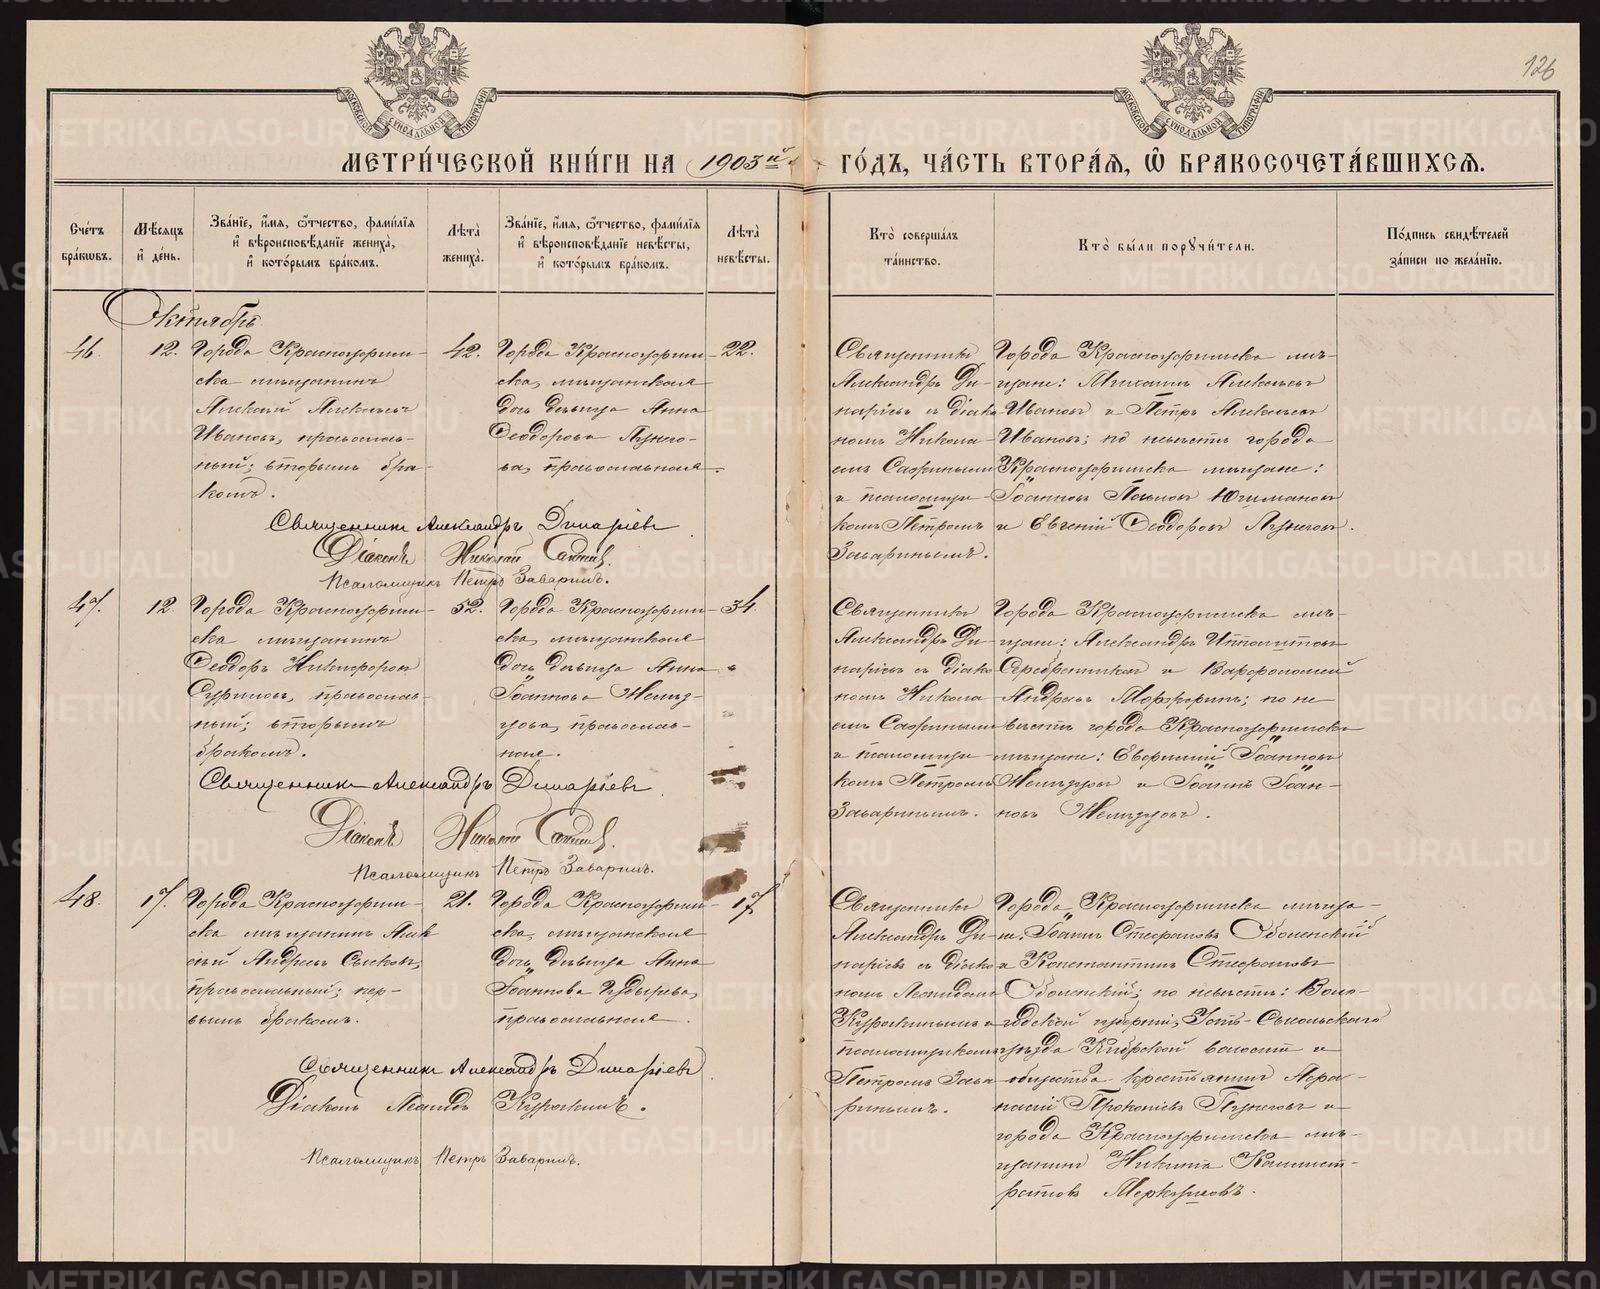 126
МОСКОВСКОЙ СѴНОДАЛЬНОЙ ТИПОГРАФІИ
МОСКОВСКОЙ СѴНОДАЛЬНОЙ ТИПОГРАФІИ
МЕТРИ́ЧЕСКОЙ КНИ́ГИ НА 1903й ГО́ДЪ, ЧА́СТЬ ВТОРА́Ѧ, Ѽ БРАКОСОЧЕТА́ВШИХСѦ.
Сче́тъ бра́кѡвъ.
Мѣ́сѧцъ и҆ де́нь.
Зва́нїе, и҆́мѧ, ѻ҆́тчество, фами́лїѧ и҆ вѣроисповѣ́данїе жениха̀, и҆ кото́рымъ бра́комъ.
Лѣта̀ жениха̀.
Зва́нїе, и҆́мѧ, ѻ҆́тчество, фами́лїѧ и҆ вѣроисповѣ́данїе невѣ́сты, и҆ кото́рымъ бра́комъ.
Лѣта̀ невѣ́сты.
Кто̀ соверша́лъ та́инство.
Кто̀ бы́ли порꙋчи́тели.
По́дпись свидѣ́телей за́писи по жела́нїю.
Октябрь
46.
12.
Города Красноуфим-
ска мѣщанинъ
Алексѣй Алексѣевъ
Ивановъ, православ-
ный; вторымъ бра-
комъ.
42.
Города Красноуфим-
ска, мѣщанская
дочь дѣвица Анна
Ѳеодорова
православная.
22.
Священникъ
Александръ Ди-
наріевъ съ діако-
номъ Никола-
емъ
и псаломщи-
комъ Петромъ
Заваринымъ.
Города Красноуфимска мѣ-
щане: Михаилъ Алексѣевъ
Ивановъ и Петръ Алексѣевъ
Ивановъ; по невѣстѣ города
Красноуфимска мѣщане:
Іоаннъ Павловъ
и Евгеній Ѳеодоровъ
Священникъ Александръ Динаріевъ
Діаконъ Николай
Псаломщикъ Петръ Заваринъ.
47.
12.
Города Красноуфим-
ска мѣщанинъ
Ѳеодоръ Никифоровъ
православ-
ный; вторымъ
бракомъ.
52.
Города Красноуфим-
ска, мѣщанская
дочь дѣвица Анна
Іоаннова
православ-
ная.
34.
Священникъ
Александръ Ди-
наріевъ съ діако-
номъ Никола-
емъ
и псаломщи-
комъ Петромъ
Заваринымъ.
Города Красноуфимска мѣ-
щане: Александръ Ипполитовъ
Серебренниковъ и Варѳоломей
Андреевъ по не-
вѣстѣ города Красноуфимска
мѣщане: Евѳимій Іоанновъ
и Іоаннъ Іоан-
новъ
Священникъ Александръ Динаріевъ
Діаконъ Николай
Псаломщикъ Петръ Заваринъ.
48.
17.
Города Красноуфим-
ска мѣщанинъ Алек-
сѣй Андреевъ Сысковъ,
православный; пер-
вымъ бракомъ.
21.
Города Красноуфим-
ска, мѣщанская
дочь дѣвица Анна
Іоаннова
православная.
17
Священникъ
Александръ Ди-
наріевъ съ діако-
номъ Леонидомъ
Курочкинымъ и
псаломщикомъ
Петромъ Зава-
ринымъ.
Города Красноуфимска мѣща-
не: Іоаннъ Стефановъ Оболенскій
и Константинъ Стефановъ
Оболенскій; по невѣстѣ: Воло-
годской губерніи, Усть-Сысольскаго
уѣзда Кибрской волости и
общества крестьянинъ Аѳа-
насій Прокопіевъ и
города Красноуфимска мѣ-
щанинъ Никита Каллист-
ратовъ Меркурьевъ.
Священникъ Александръ Динаріевъ
Діаконъ Леонидъ Курочкинъ.
Псаломщикъ Петръ Заваринъ.
METRIKI.GASO-URAL.RU